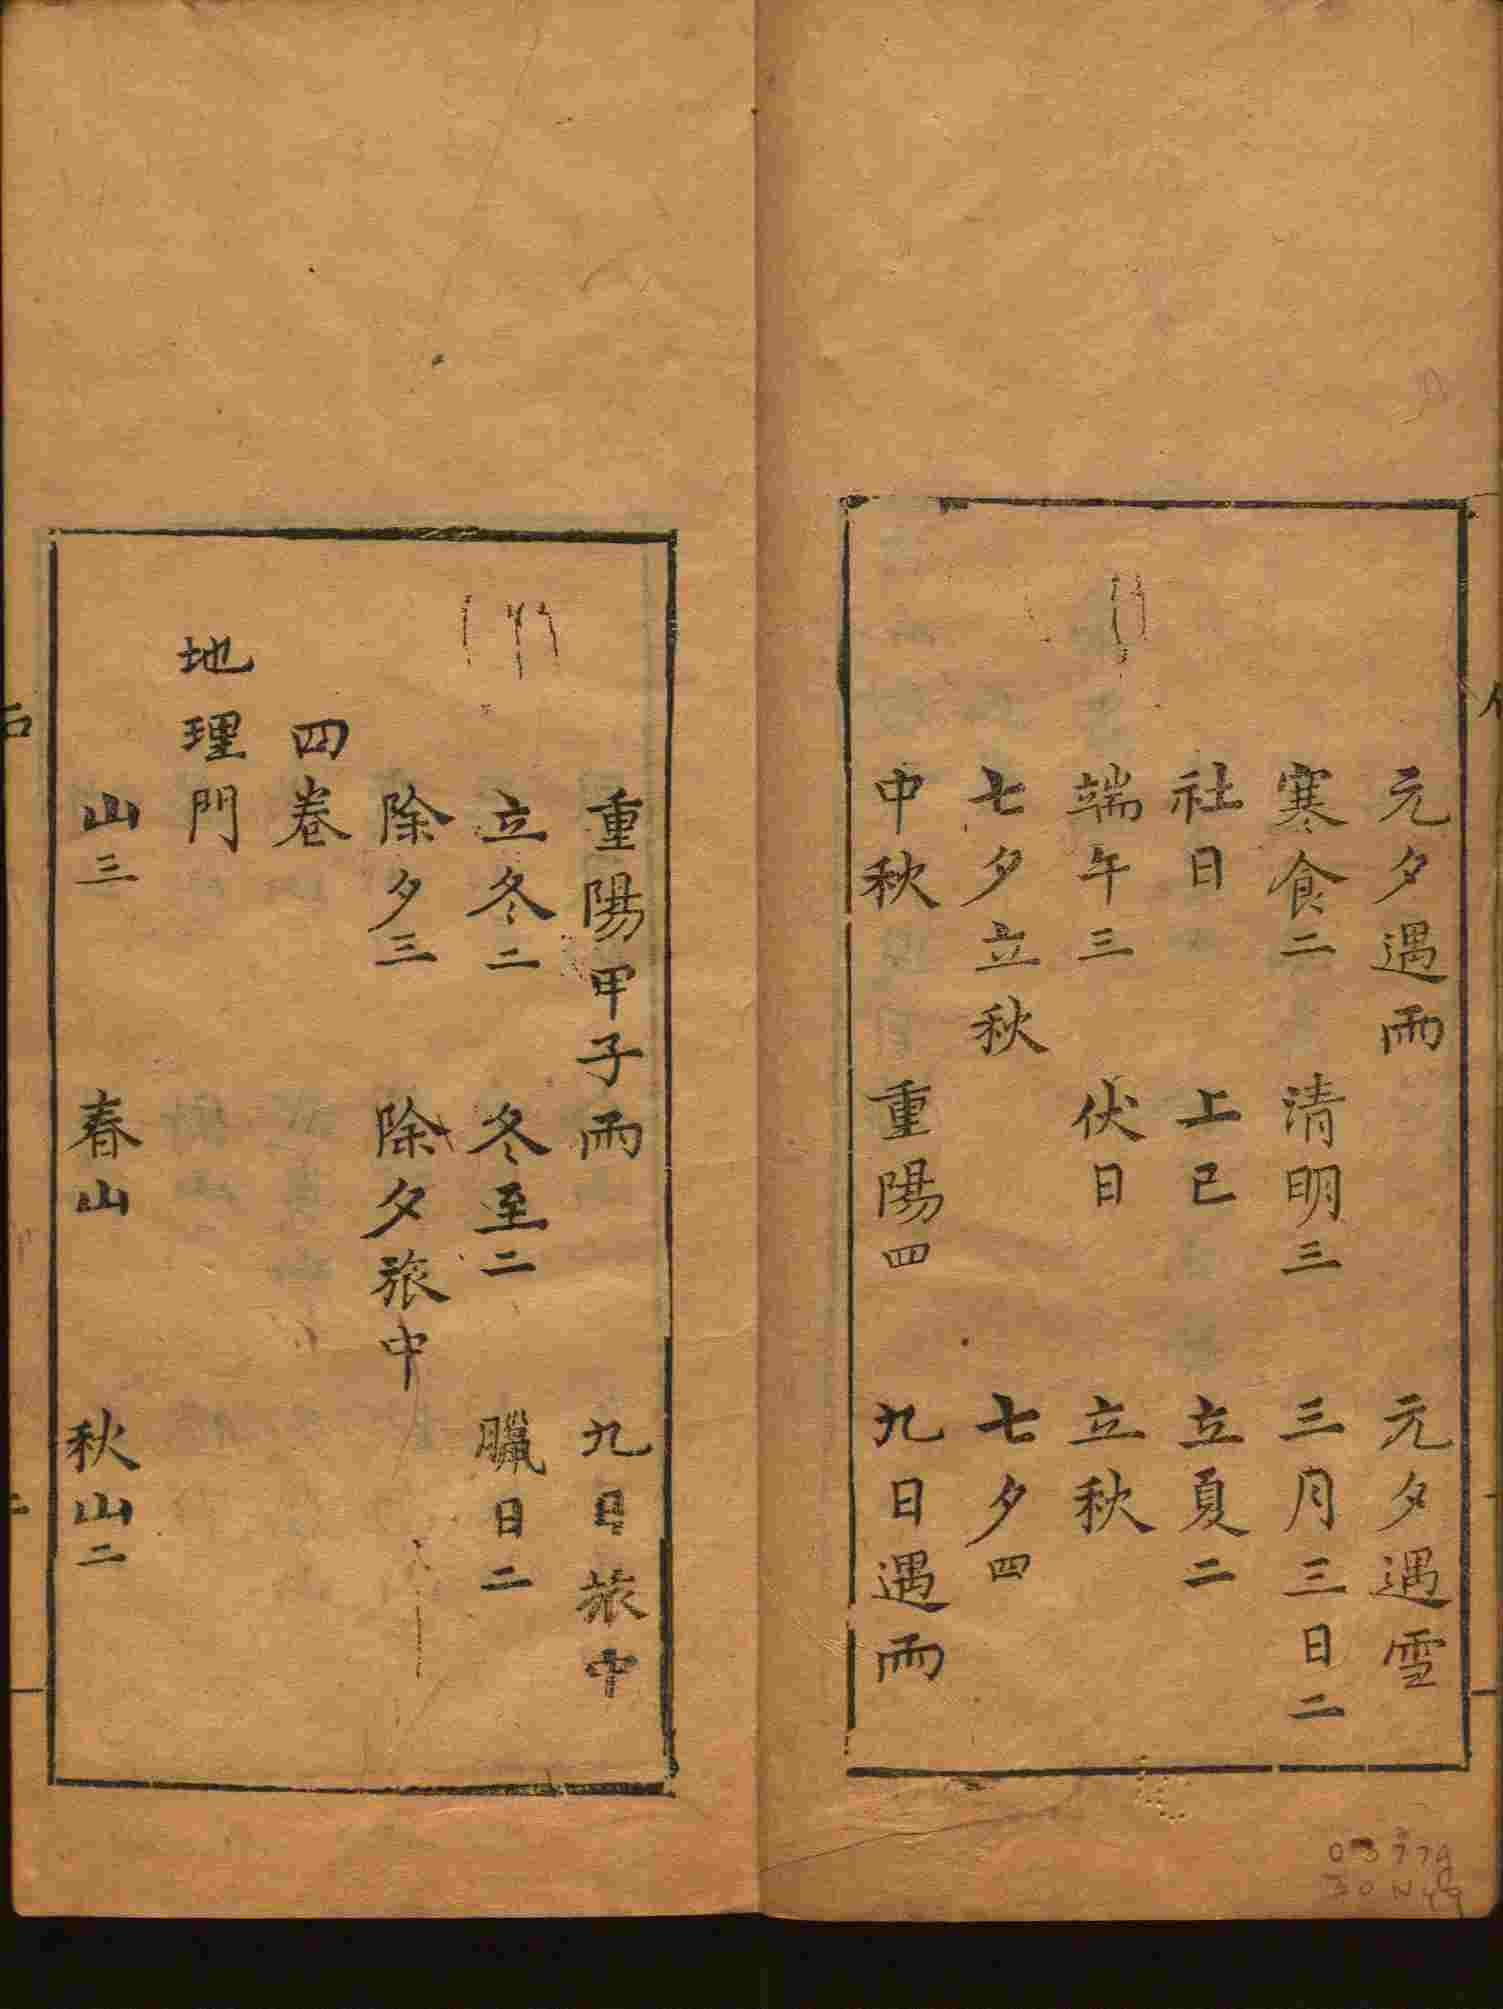 元夕遇雨 元夕遇雪
寒食二 清明三 三月三日二
社日 上巳 立夏二
端午三 伏日 立秋
七夕立秋 七夕四
中秋 重陽四 九日遇雨
重陽甲子雨 九日旅中
立冬二 冬至二 臘日二
除夕三 除夕旅中
四卷
地理門
山三 春山 秋山二